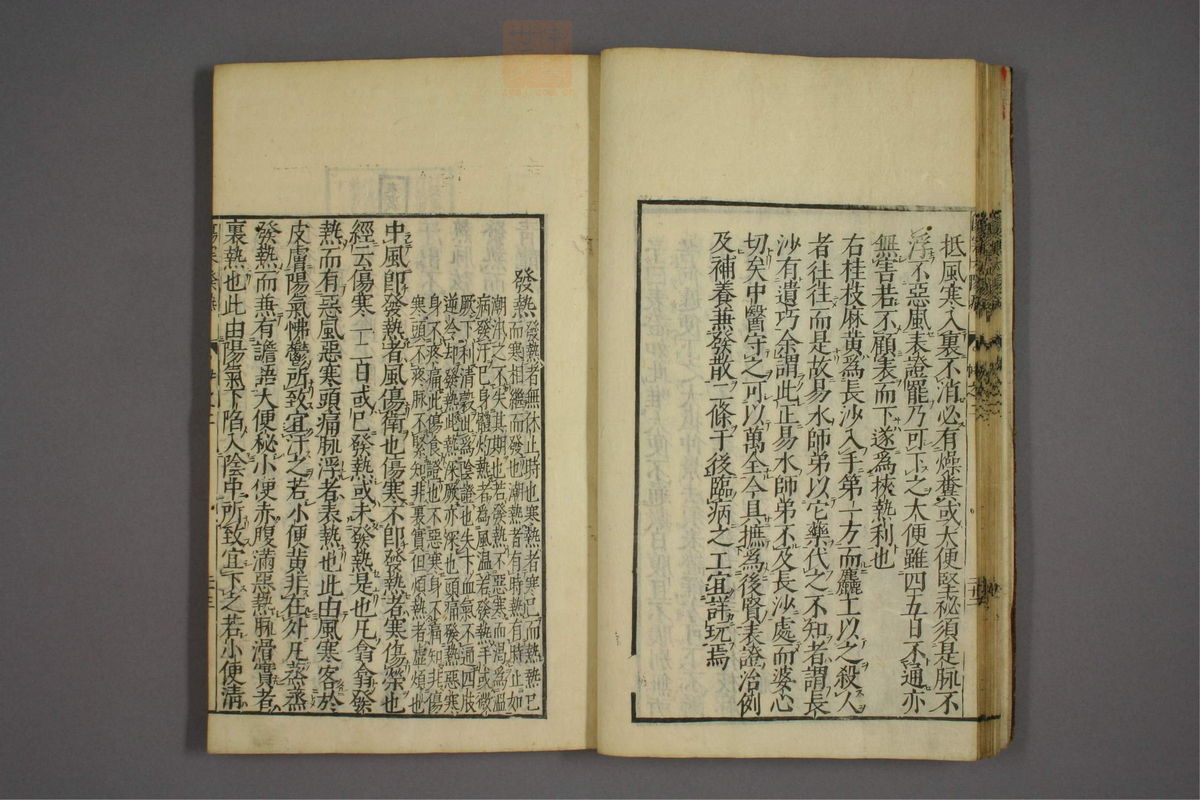 抵風寒入裏不消必有燥糞或大便堅秘須是脉不
浮不惡風表證罷乃可下之大便雖四五日不通亦
無害若不顧表而下遂爲挾熱利也
右桂枝麻黄爲長沙入手第一方而麤工以之殺人
者往往而是故易水師弟以它藥代之不知者謂長
沙有遺巧余謂此正易水師弟不及長沙處而婆心
切矣中醫守之可以萬全今且摭爲後賢表證治例
及補養兼發散二條于後臨病之工宜詳玩焉
發熱
發熱者無休止時也寒熱者寒已而熱熱已
而寒相繼而發也潮熱者有時熱有時止如
潮汛之不失其期也若發熱不惡寒而渴爲溫
病發汗已身體灼熱者為風温若發熱手足微
厥下利清穀此爲陰證也失下血氣不通四肢
逆冷却發熱此熱深厥亦深也頭痛發熱惡寒
身不疼痛此傷食證也不惡寒身不痛知非傷
寒頭不疼脉不緊知非裏實但煩熱者虚煩也
中風卽發熱者風傷衛也傷寒不卽發熱者寒傷榮也
經云傷寒一二日或已發熱或未發熱是也凡翕翕發
熱而有惡風惡寒頭痛脉浮者表熱也此由風寒客於
皮膚陽氣怫鬱所致宜汗之若小便黄非在外凡蒸蒸
發熱而兼有譫語大便秘小便赤腹滿惡熱脉滑實者
裏熱也此由陽氣下陷入陰中所致宜下之若小便清